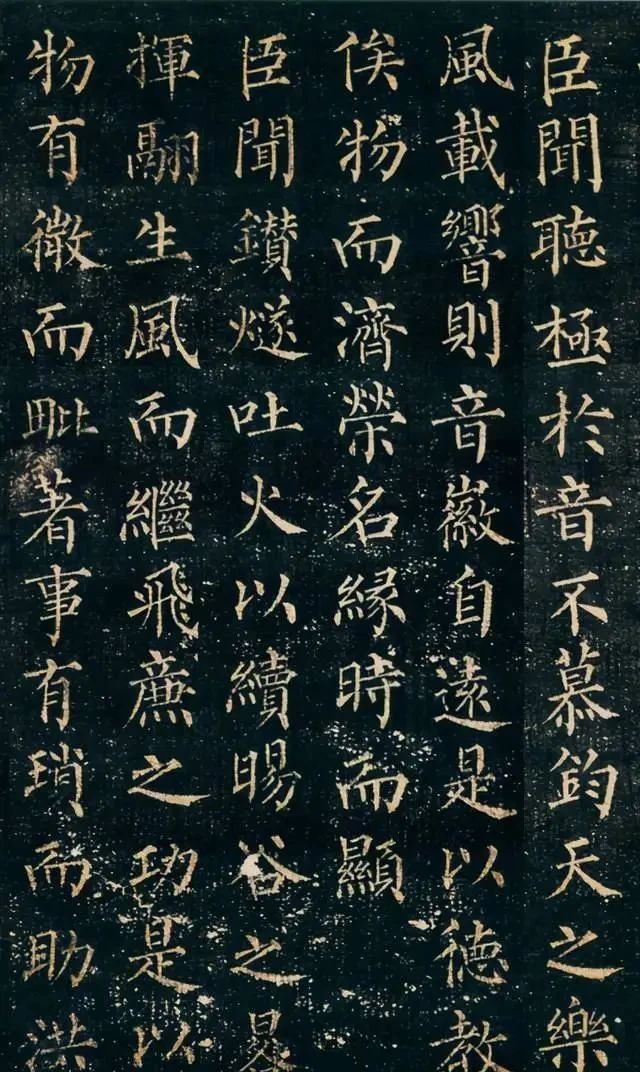 臣聞聽極於音不慕鈞天之樂
風載響則音徽自遠是以德教
俟物而濟榮名緣時而顯
臣聞鑽燧吐火以續暘谷之晷
揮翮生風而繼飛廉之功是以
物有微而毗著事有瑣而助洪